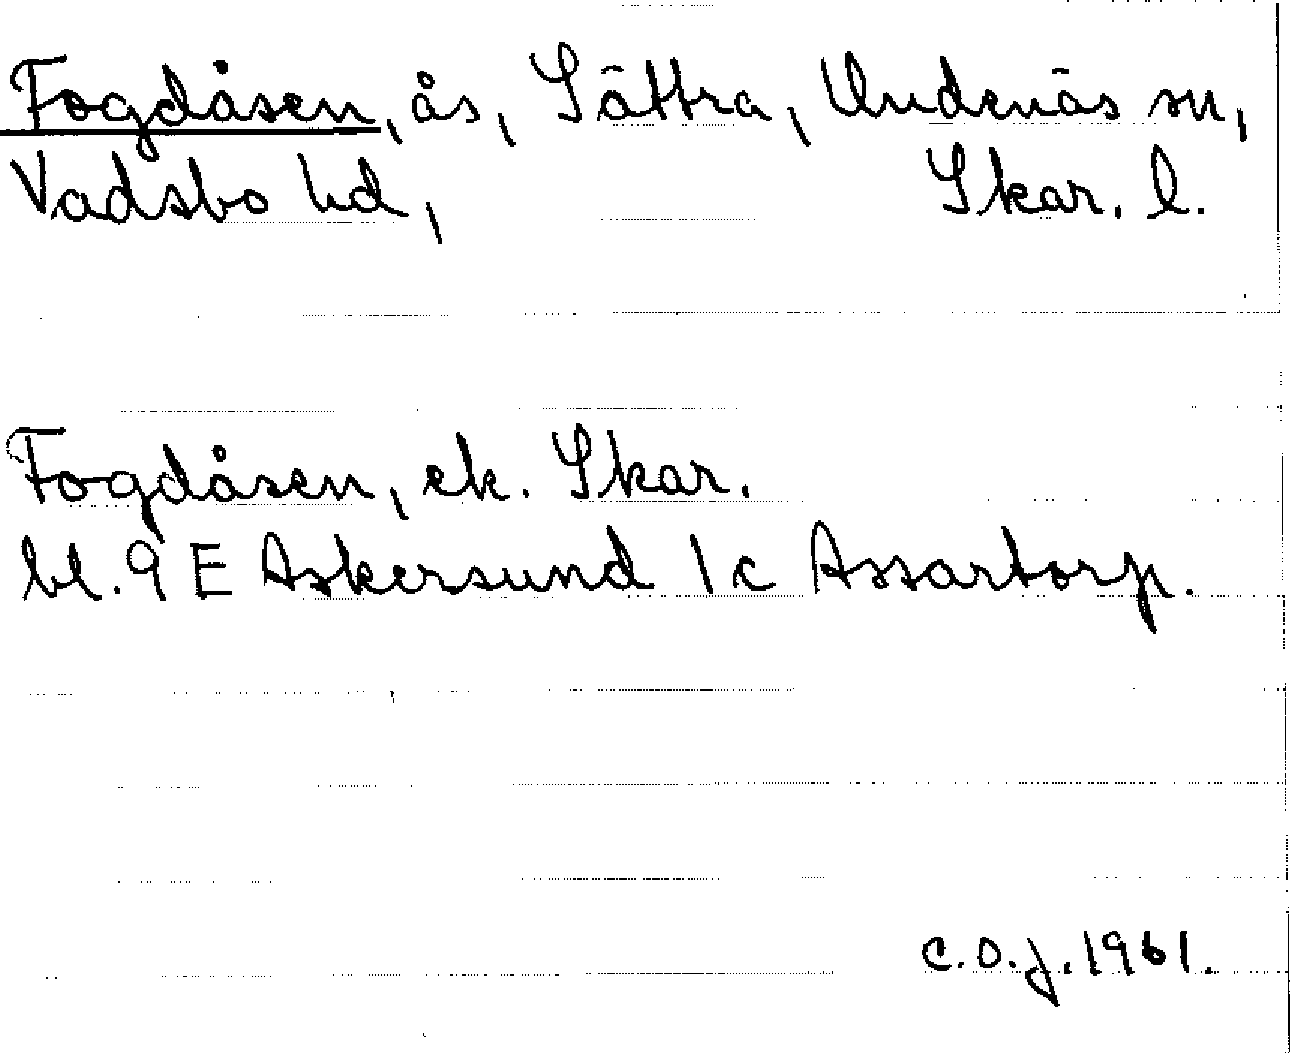 Fogdåsen, ås, Sätra, Undenäs sn,
Vadsbo hd, Skar. l.
Fogdåsen, ek. Skar.
bl. 9 E Askersund 1c Assartorp.
C.O.J. 1961.